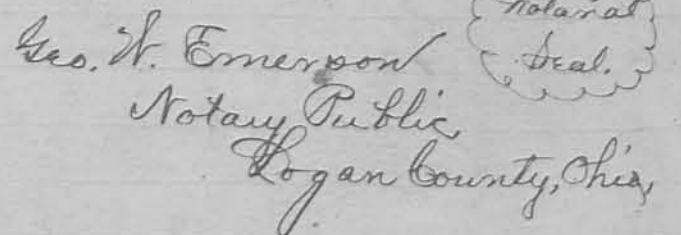 Geo. W. Emerson
Notarial
Seal.
Notary Public,
Logan County, Ohio,